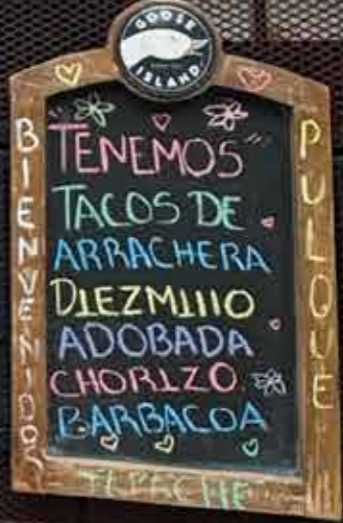 GOOSE
ISLAND
BIENVENIDOS
"TENEMOS"
TACOS DE
ARRACHERA
DIEZMIIIO
ADOBADA
CHORIZO
BARBACOA
PULQUE
TEPACHE